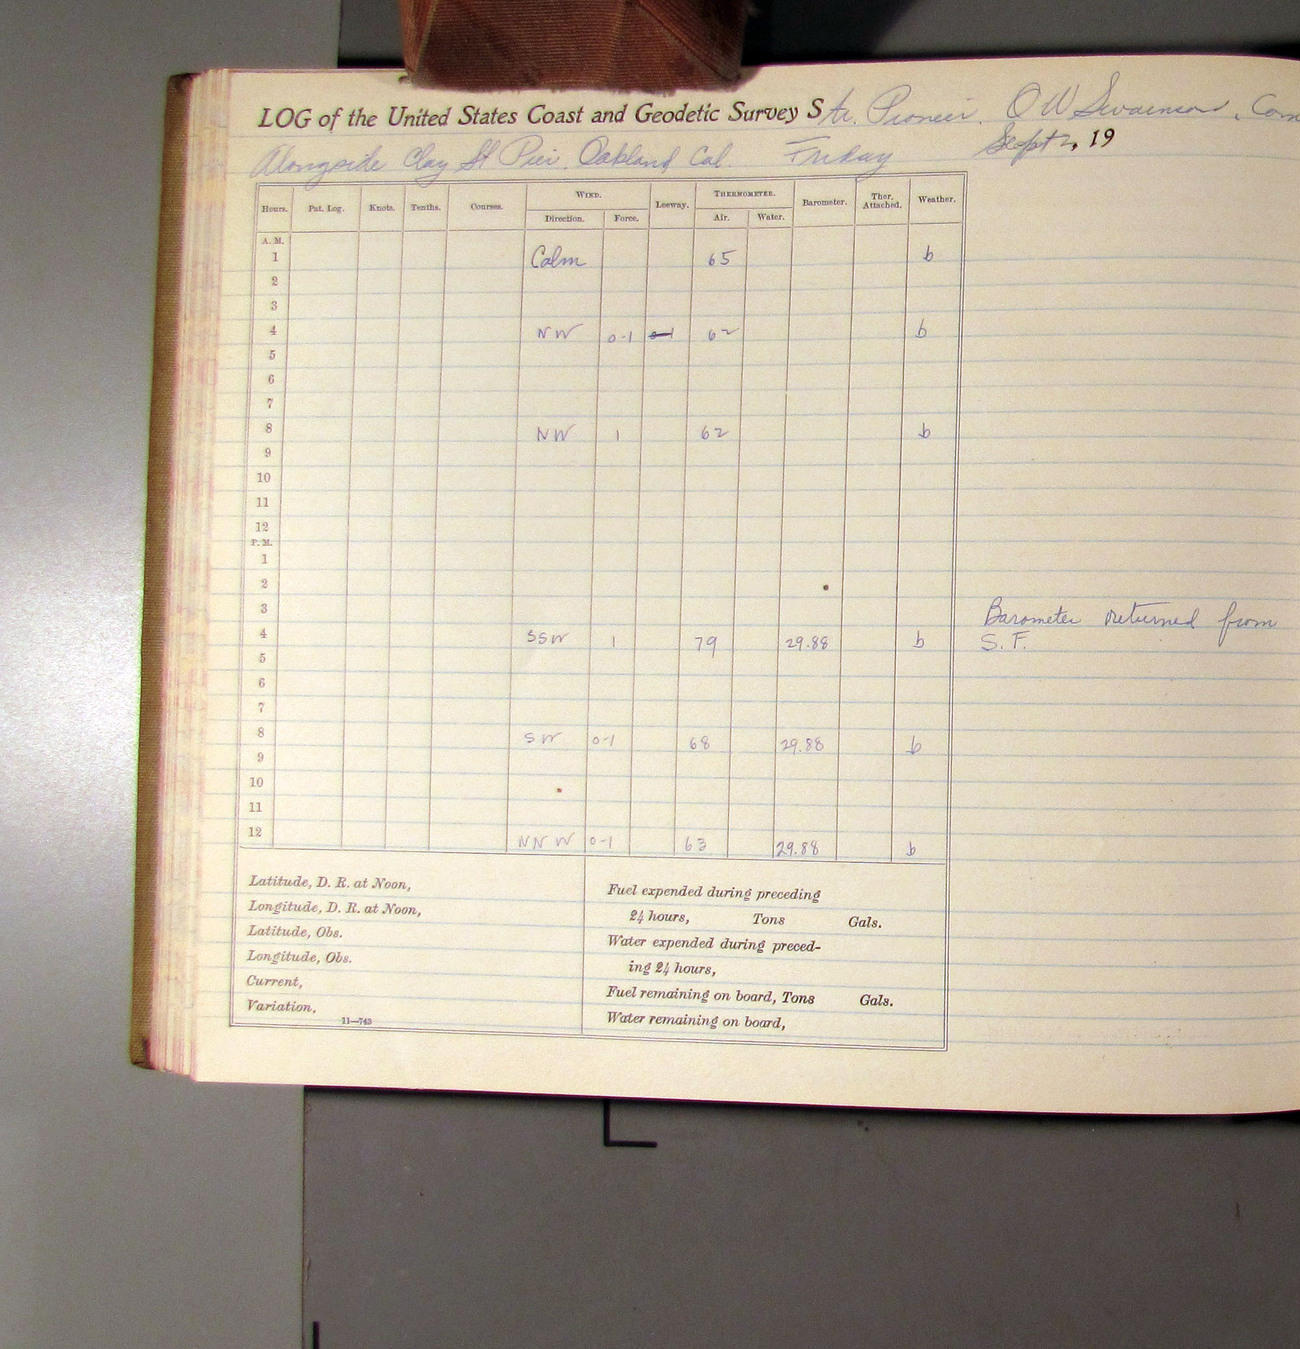 LOG of the United States Coast and Geodetic Survey Str. Pioneer. O W Swainson, Com
Alongside Clay St Pier. Oakland Cal. Friday Sept 2, 19
Hours. Pat. Log. Knots. Tenths. Courses. WIND. Leeway. THERMOMETER. Barometer. Ther. Attached. Weather.
Direction. Force. Air. Water.
A. M.
1 Calm 65 b
2
3
4 NW 0-1 0-1 62 b
5
6
7
8 NW 1 62 b
9
10
11
12
P. M.
1
2
3
4 SSW 1 79 29.88 b Barometer returned from
S. F.
5
6
7
8 SW 0-1 68 29.88 b
9
10
11
12 NNW 0-1 63 29.88 b
Latitude, D. R. at Noon,
Longitude, D. R. at Noon,
Latitude, Obs.
Longitude, Obs.
Current,
Variation,
11—743
Fuel expended during preceding
24 hours, Tons Gals.
Water expended during preced-
ing 24 hours,
Fuel remaining on board, Tons Gals.
Water remaining on board,